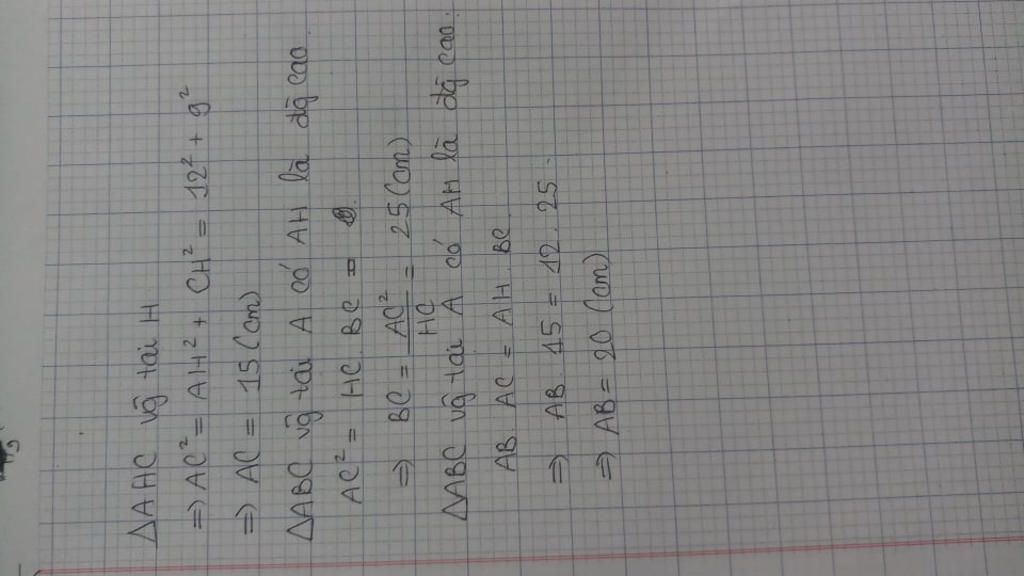 △AHC vg̃ tại H
⇒ AC² = AH² + CH² = 12² + 9²
⇒ AC = 15 (cm)
△ABC vg̃ tại A có AH là đg̃ cao
AC² = HC. BC =
⇒ BC = AC²/HC = 25 (cm)
△ABC vg̃ tại A có AH là đg̃ cao.
AB. AC = AH. BC
⇒ AB. 15 = 12. 25.
⇒ AB = 20 (cm)